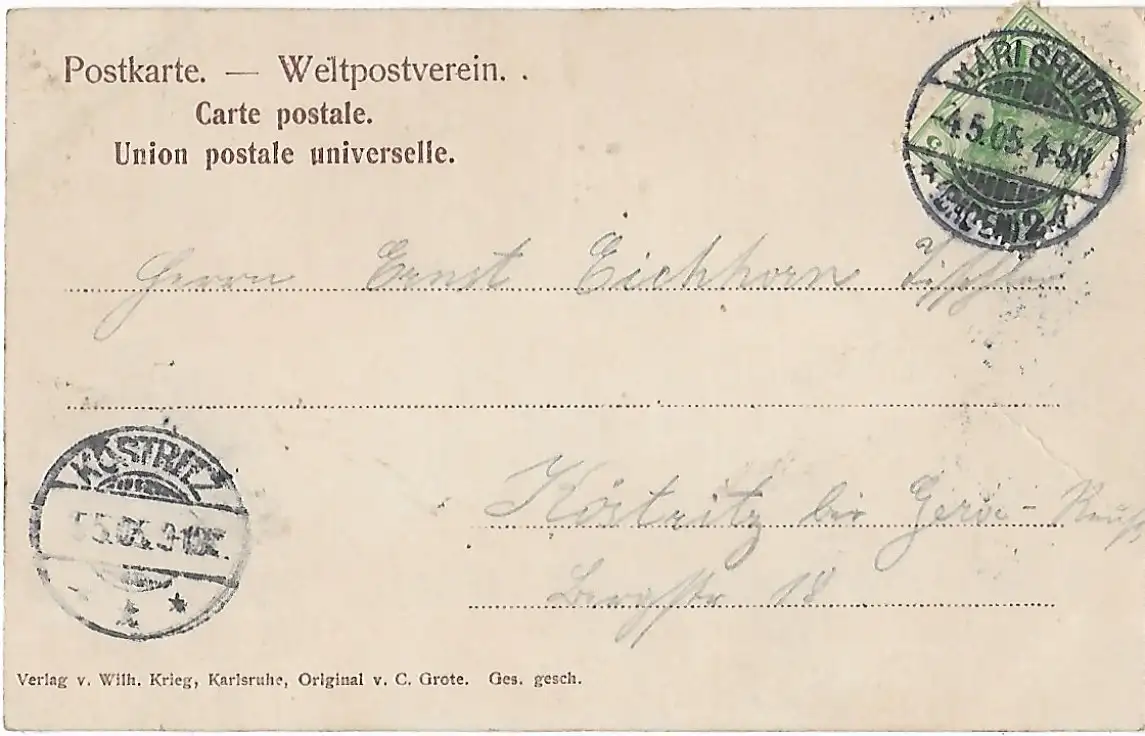 Postkarte. — Weltpostverein. .
Carte postale.
Union postale universelle.
KARLSRUHE
-4.5.05. 4-5N.
* (BADEN) 2 *
Herrn Ernst Eichhorn
Köstritz bei Gera - Reuß
Bergstr 18
KÖSTRITZ
5.5.05. 9-10
Verlag v. Wilh. Krieg, Karlsruhe, Original v. C. Grote. Ges. gesch.